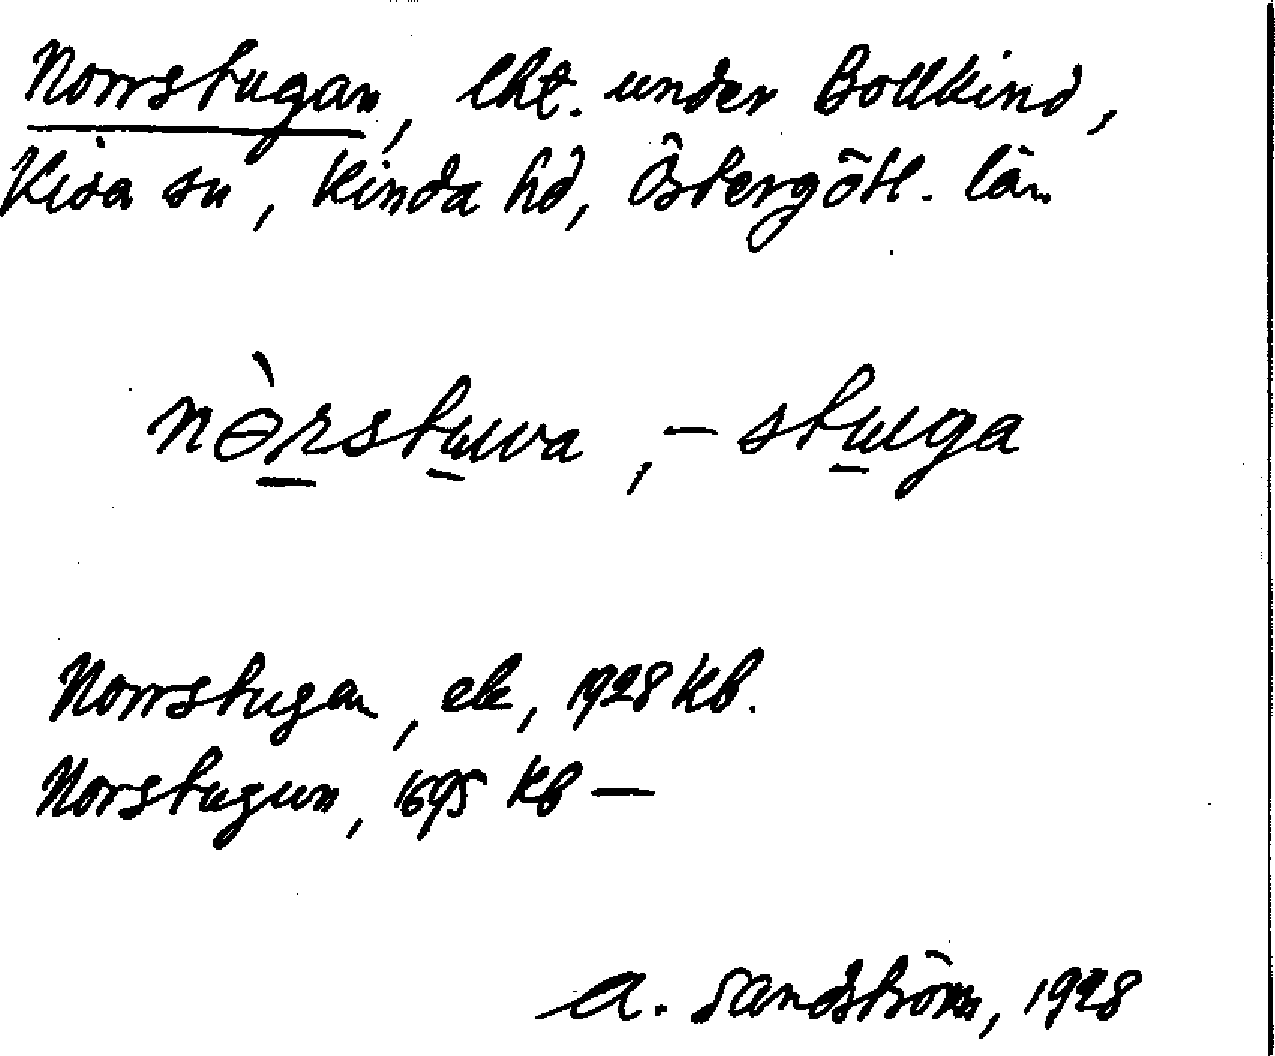 Norrstugan, lht. under Bollkind,
Kisa sn, Kinda hd, Östergötl. län
nɵ̀rstuwa, -stuga
Norrstugan, ek, 1928 Kb.
Norstugun, 1695 Kb —
A. Sandström, 1928